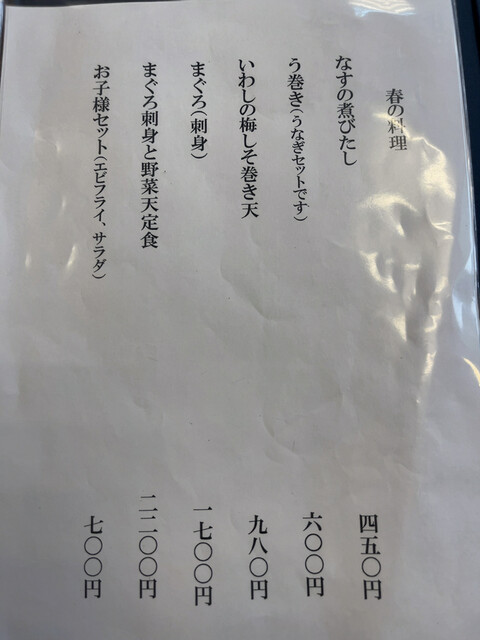 春の料理
なすの煮びたし 四五〇円
う巻き(うなぎセットです) 六〇〇円
いわしの梅しそ巻き天 九八〇円
まぐろ(刺身) 一七〇〇円
まぐろ刺身と野菜天定食 二二〇〇円
お子様セット(エビフライ、サラダ) 七〇〇円